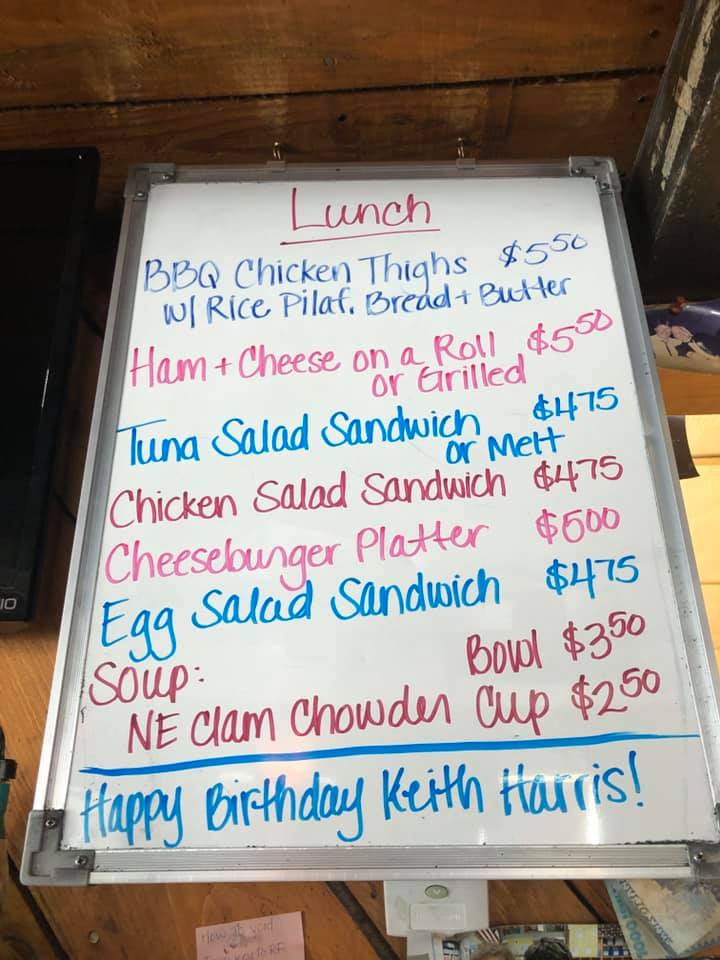 Lunch
BBQ Chicken Thighs $5.50
w/ Rice Pilaf, Bread + Butter
Ham + Cheese on a Roll $5.50
or Grilled
Tuna Salad Sandwich $4.75
or Melt
Chicken Salad Sandwich $4.75
Cheeseburger Platter $5.00
Egg Salad Sandwich $4.75
Soup: Bowl $3.50
NE Clam Chowder Cup $2.50
Happy Birthday Keith Harris!